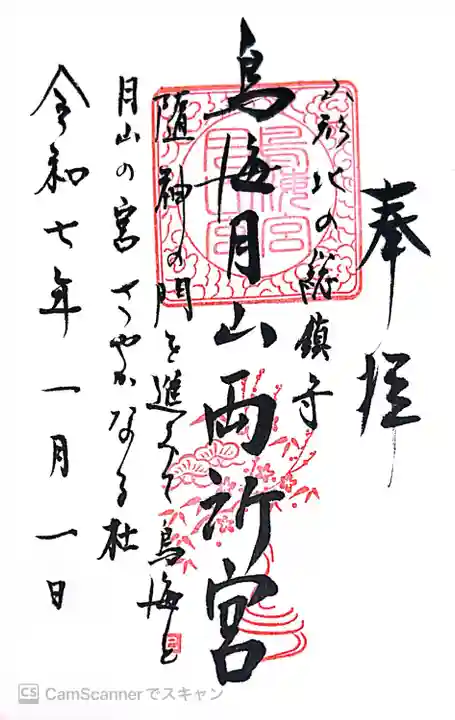 奉拝
山形北の総鎮守
鳥海月山両所宮
随神の門を進みて鳥海と
月山の宮さやかなる杜
令和七年一月一日
CS CamScannerでスキャン